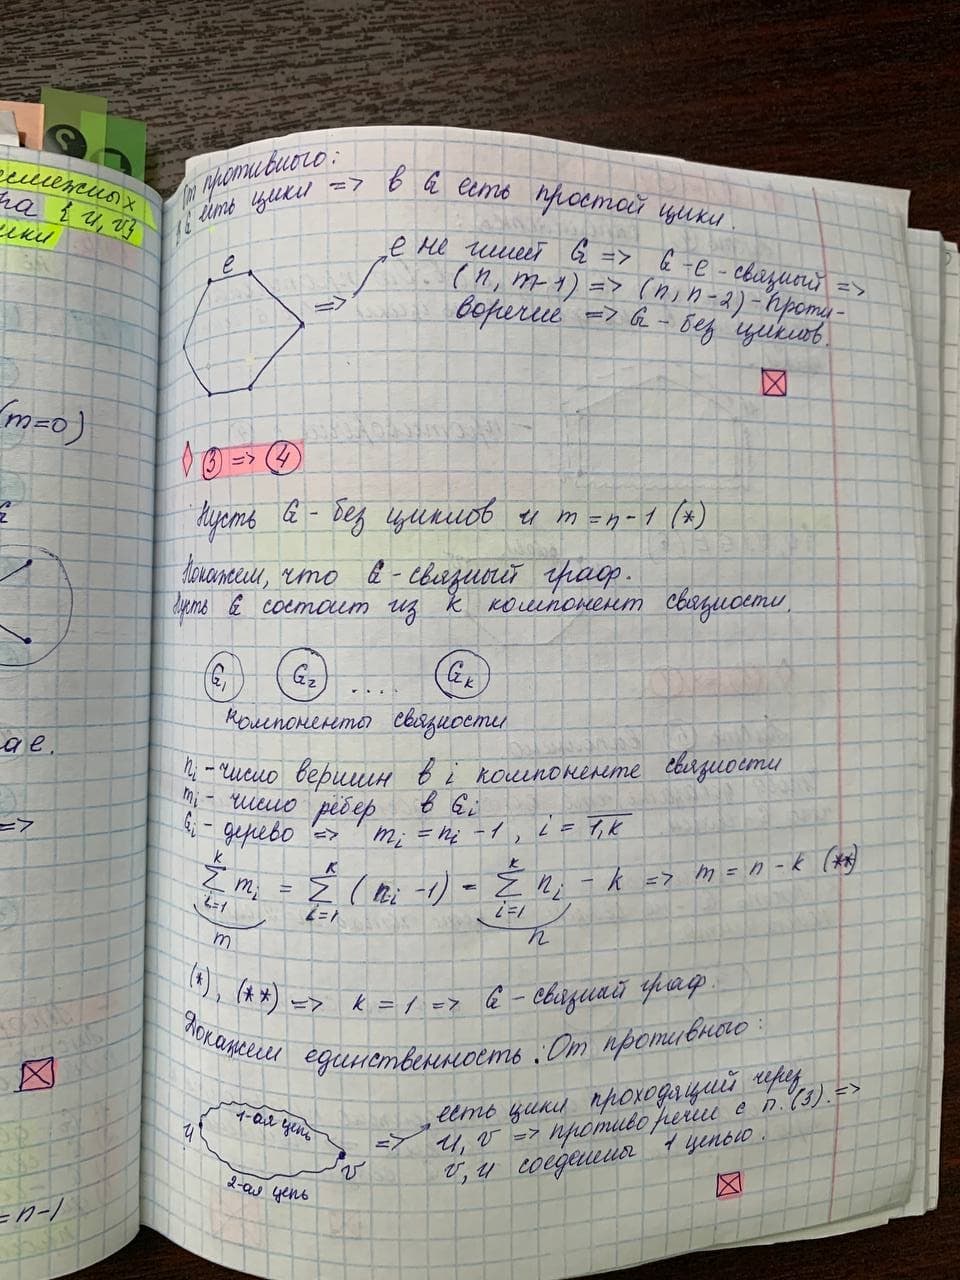 несмежных
ра {u, v}
ики
(m=0)
ае.
=>
= n-1
От противного:
В G есть цикл => в G есть простой цикл.
e
=> e не имеет G => G-e-связный =>
(n, m-1) => (n, n-2)-проти-
воречие => G - без циклов.
3 => 4
Пусть G - без циклов и m = n-1 (*)
Покажем, что G-связный граф.
Пусть G состоит из k компонент связности.
G₁ G₂ .... Gₖ
компоненты связности
nᵢ - число вершин в i компоненте связности
mᵢ - число рёбер в Gᵢ
Gᵢ - дерево => mᵢ = nᵢ - 1, i = 1,k
k k k
∑ mᵢ = ∑ (nᵢ - 1) = ∑ nᵢ - k => m = n - k (**)
i=1 i=1 i=1
m n
(*), (**) => k = 1 => G - связный граф.
Докажем единственность: От противного:
1-ая цепь
u v
2-ая цепь
=> есть цикл проходящий через
u, v => противоречие с п. (3). =>
v, u соединены 1 цепью.